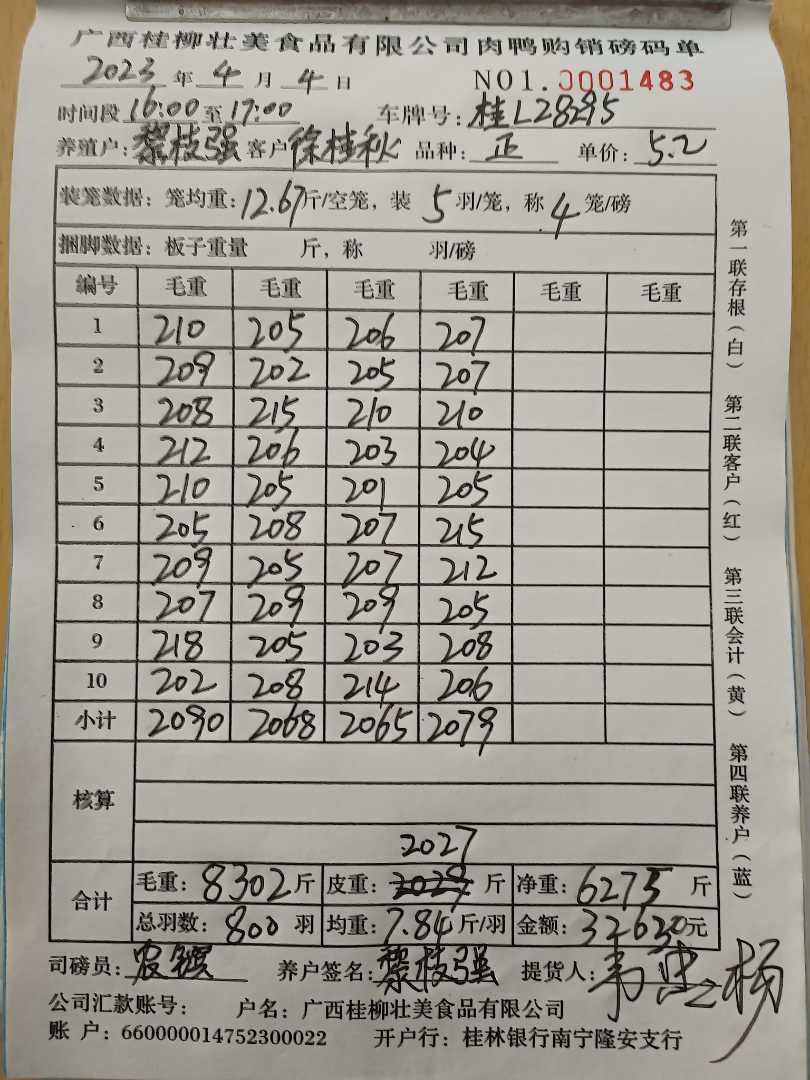 广西桂柳壮美食品有限公司肉鸭购销磅码单
2023 年 4 月 4 日 NO1.0001483
时间段 16:00 至 17:00 车牌号: 桂L28295
养殖户: 黎枝强 客户 徐桂秋 品种: 正 单价: 5.2
装笼数据: 笼均重: 12.67 斤/空笼, 装 5 羽/笼, 称 4 笼/磅
捆脚数据: 板子重量 斤, 称 羽/磅
编号 毛重 毛重 毛重 毛重 毛重 毛重
1 210 205 206 207
2 209 202 205 207
3 208 215 210 210
4 212 206 203 204
5 210 205 201 205
6 205 208 207 215
7 209 205 207 212
8 207 209 209 205
9 218 205 203 208
10 202 208 214 206
小计 2090 2068 2065 2079
核算
2027
合计 毛重: 8302 斤 皮重: 2029 斤 净重: 6275 斤
总羽数: 800 羽 均重: 7.84 斤/羽 金额: 32630 元
司磅员: 农 养户签名: 黎枝强 提货人: 韦 杨
公司汇款账号: 户名: 广西桂柳壮美食品有限公司
账 户: 660000014752300022 开户行: 桂林银行南宁隆安支行
第一联存根(白) 第二联客户(红) 第三联会计(黄) 第四联养户(蓝)